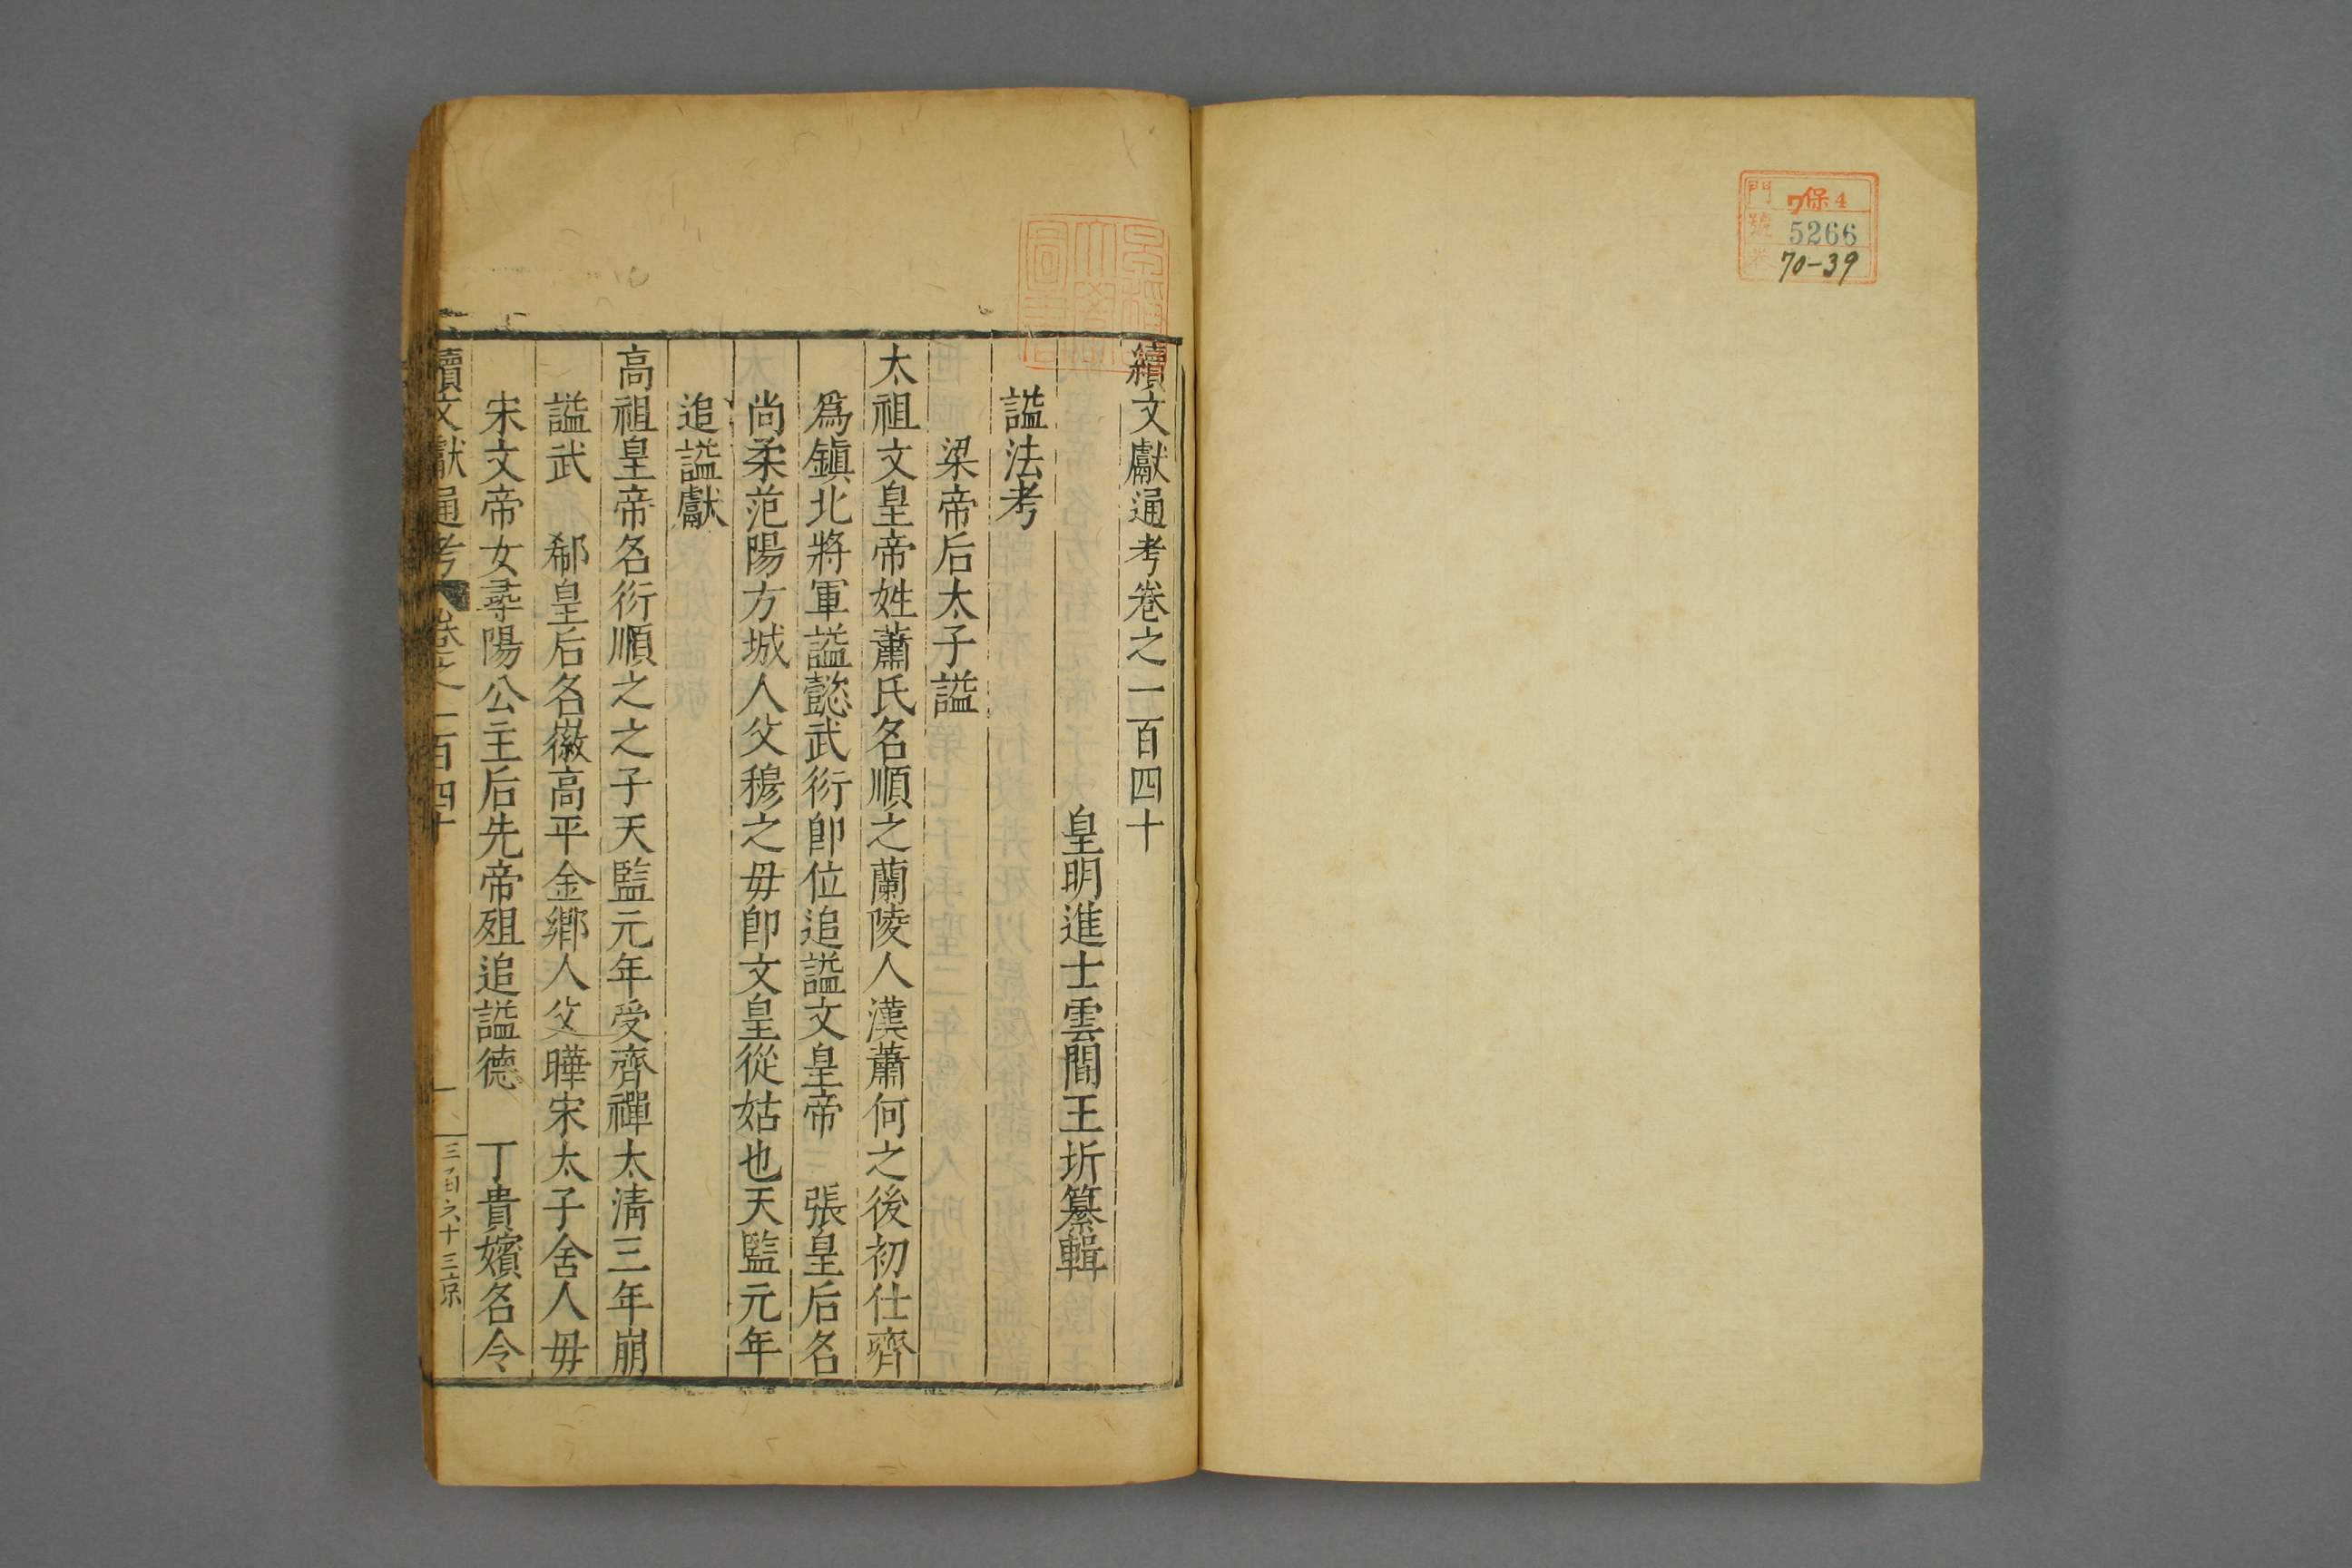 門 保4
號 5266
70-39
續文獻通考卷之一百四十
皇明進士雲間王圻纂輯
諡法考
梁帝后太子諡
太祖文皇帝姓蕭氏名順之蘭陵人漢蕭何之後初仕齊
爲鎭北將軍諡懿武衍卽位追諡文皇帝 張皇后名
尚柔范陽方城人父穆之毋卽文皇從姑也天監元年
追諡獻
高祖皇帝名衍順之之子天監元年受齊禪太淸三年崩
諡武 郗皇后名徽高平金鄉人父曄宋太子舍人毋
宋文帝女尋陽公主后先帝殂追諡德 丁貴嬪名令
續文獻通考 卷之一百四十 一 三百六十三 京